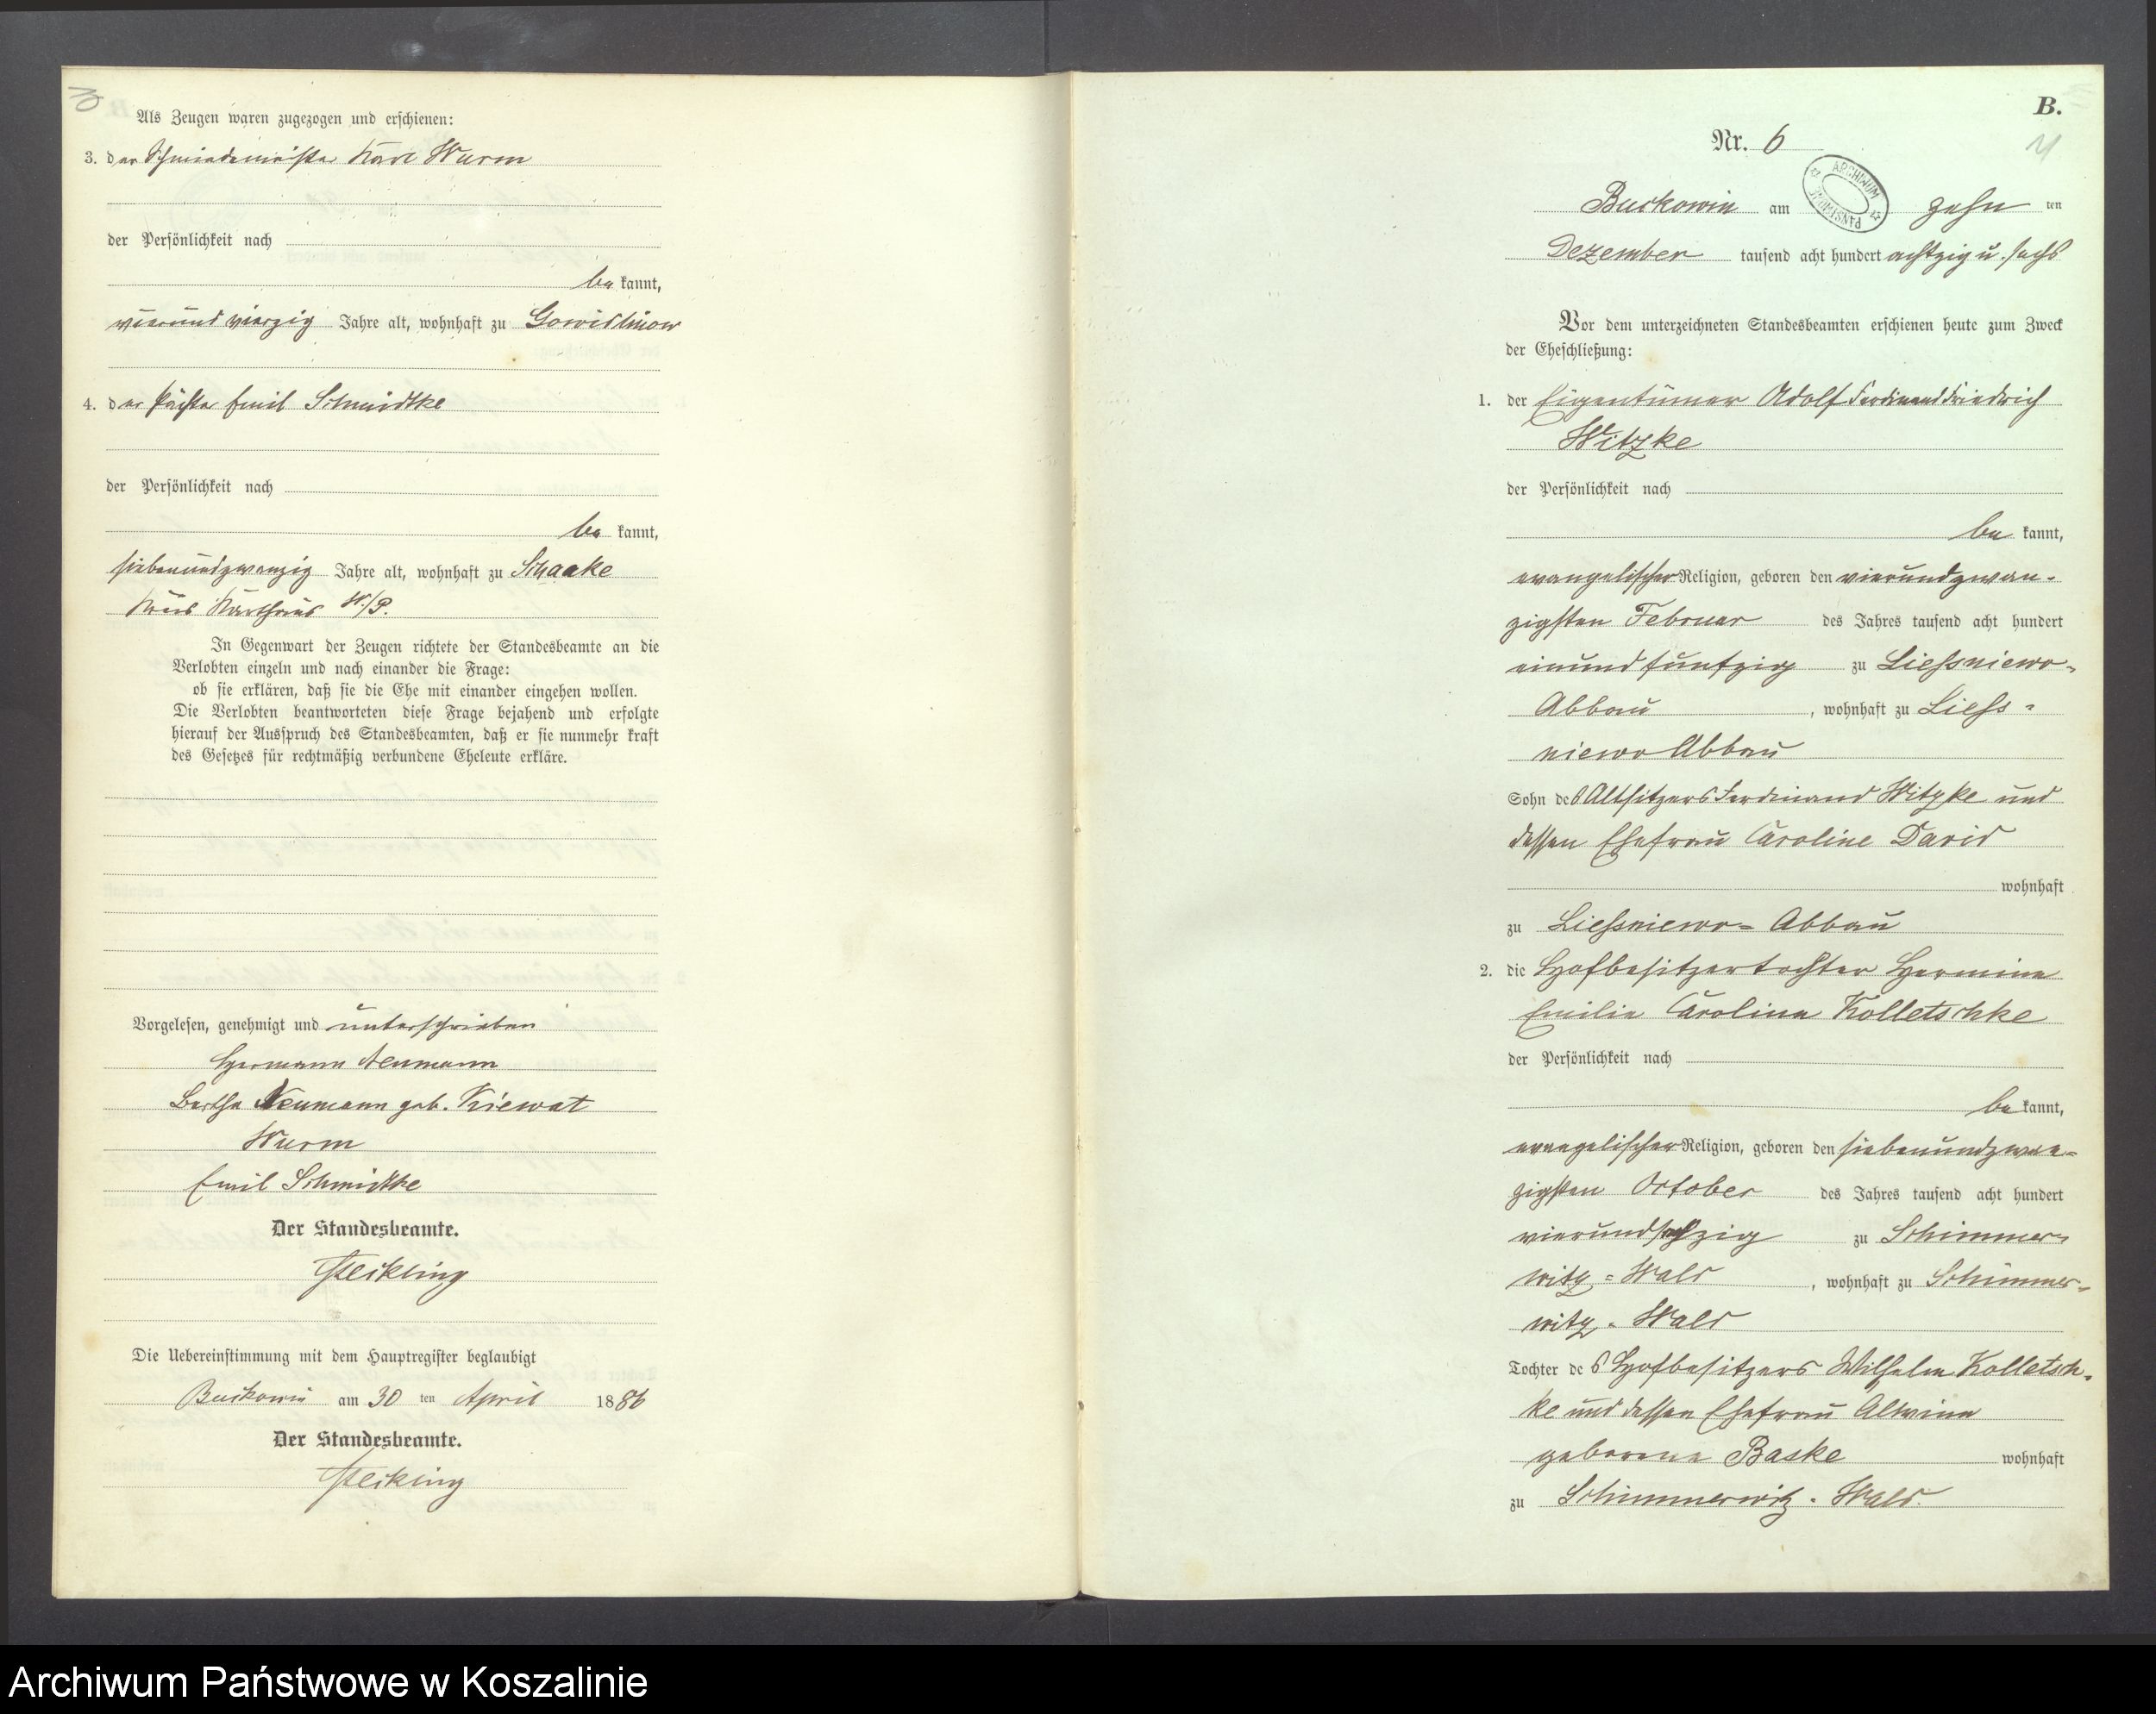 Als Zeugen waren zugezogen und erschienen:
3. der Schmiedemeister Karl Wurm
der Persönlichkeit nach
be kannt,
vierund vierzig Jahre alt, wohnhaft zu Gowidlinow
4. der Pächter Emil Schmidtke
der Persönlichkeit nach
be kannt,
siebenundzwanzig Jahre alt, wohnhaft zu
Kreis Karthaus W./P.
In Gegenwart der Zeugen richtete der Standesbeamte an die
Verlobten einzeln und nach einander die Frage:
ob sie erklären, daß sie die Ehe mit einander eingehen wollen.
Die Verlobten beantworteten diese Frage bejahend und erfolgte
hierauf der Ausspruch des Standesbeamten, daß er sie nunmehr kraft
des Gesetzes für rechtmäßig verbundene Eheleute erkläre.
Vorgelesen, genehmigt und unterschrieben
Hermann Neumann
Bertha Neumann geb. Kiewat
Wurm
Emil Schmidtke
Der Standesbeamte.
Die Uebereinstimmung mit dem Hauptregister beglaubigt
Buckowin am 30 ten April 1886
Der Standesbeamte.
B.
Nr. 6
ARCHIWUM PAŃSTWOWE
Buckowin am zehn ten
Dezember tausend acht hundert achtzig u. sechs
Vor dem unterzeichneten Standesbeamten erschienen heute zum Zweck
der Eheschließung:
1. der Eigentümer Adolf Ferdinand Friedrich
Witzke
der Persönlichkeit nach
be kannt,
evangelischer Religion, geboren den vierundzwan-
zigsten Februar des Jahres tausend acht hundert
einundfünfzig zu Liessniewo-
Abbau, wohnhaft zu Liess-
niewo Abbau
Sohn des Altsitzers Ferdinand Witzke und
dessen Ehefrau Caroline David
wohnhaft
zu Liessniewo-Abbau
2. die Hofbesitzertochter Hermine
Emilie Caroline Kolletschke
der Persönlichkeit nach
be kannt,
evangelischer Religion, geboren den siebenundzwan-
zigsten October des Jahres tausend acht hundert
vierundsechzig zu Schimmer-
witz-Wald, wohnhaft zu Schimmer-
witz-Wald
Tochter des Hofbesitzers Wilhelm Kolletsch-
ke und dessen Ehefrau Alwine
geborene Baske wohnhaft
zu Schimmerwitz-Wald.
Archiwum Państwowe w Koszalinie